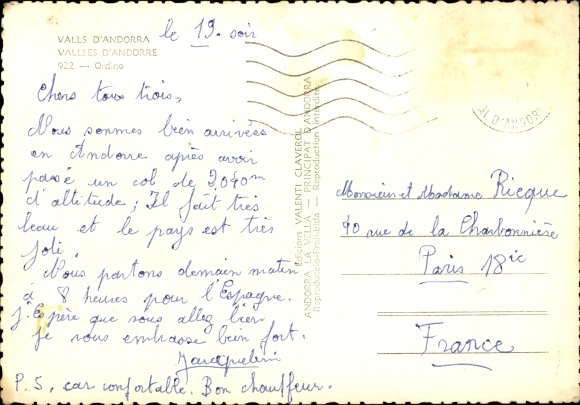 VALLS D'ANDORRA
VALLÉES D'ANDORRE
922 — Ordino
le 19. soir
Chers tous trois,
Nous sommes bien arrivées
en Andorre après avoir
passé un col de 2040m
d'altitude; Il fait très
beau et le pays est très
joli.
Nous partons demain matin
à 8 heures pour l'Espagne.
J'Espère que vous allez bien
je vous embrasse bien fort.
Jacquelin
P.S. car confortable. Bon chauffeur.
Edicions VALENTI CLAVEROL
ANDORRA LA VELLA — PRINCIPAT D'ANDORRA
Reproducció Prohibida — Reproduction interdite
Monsieur et Madame Ricque
40 rue de la Charbonnière
Paris 18ie
France